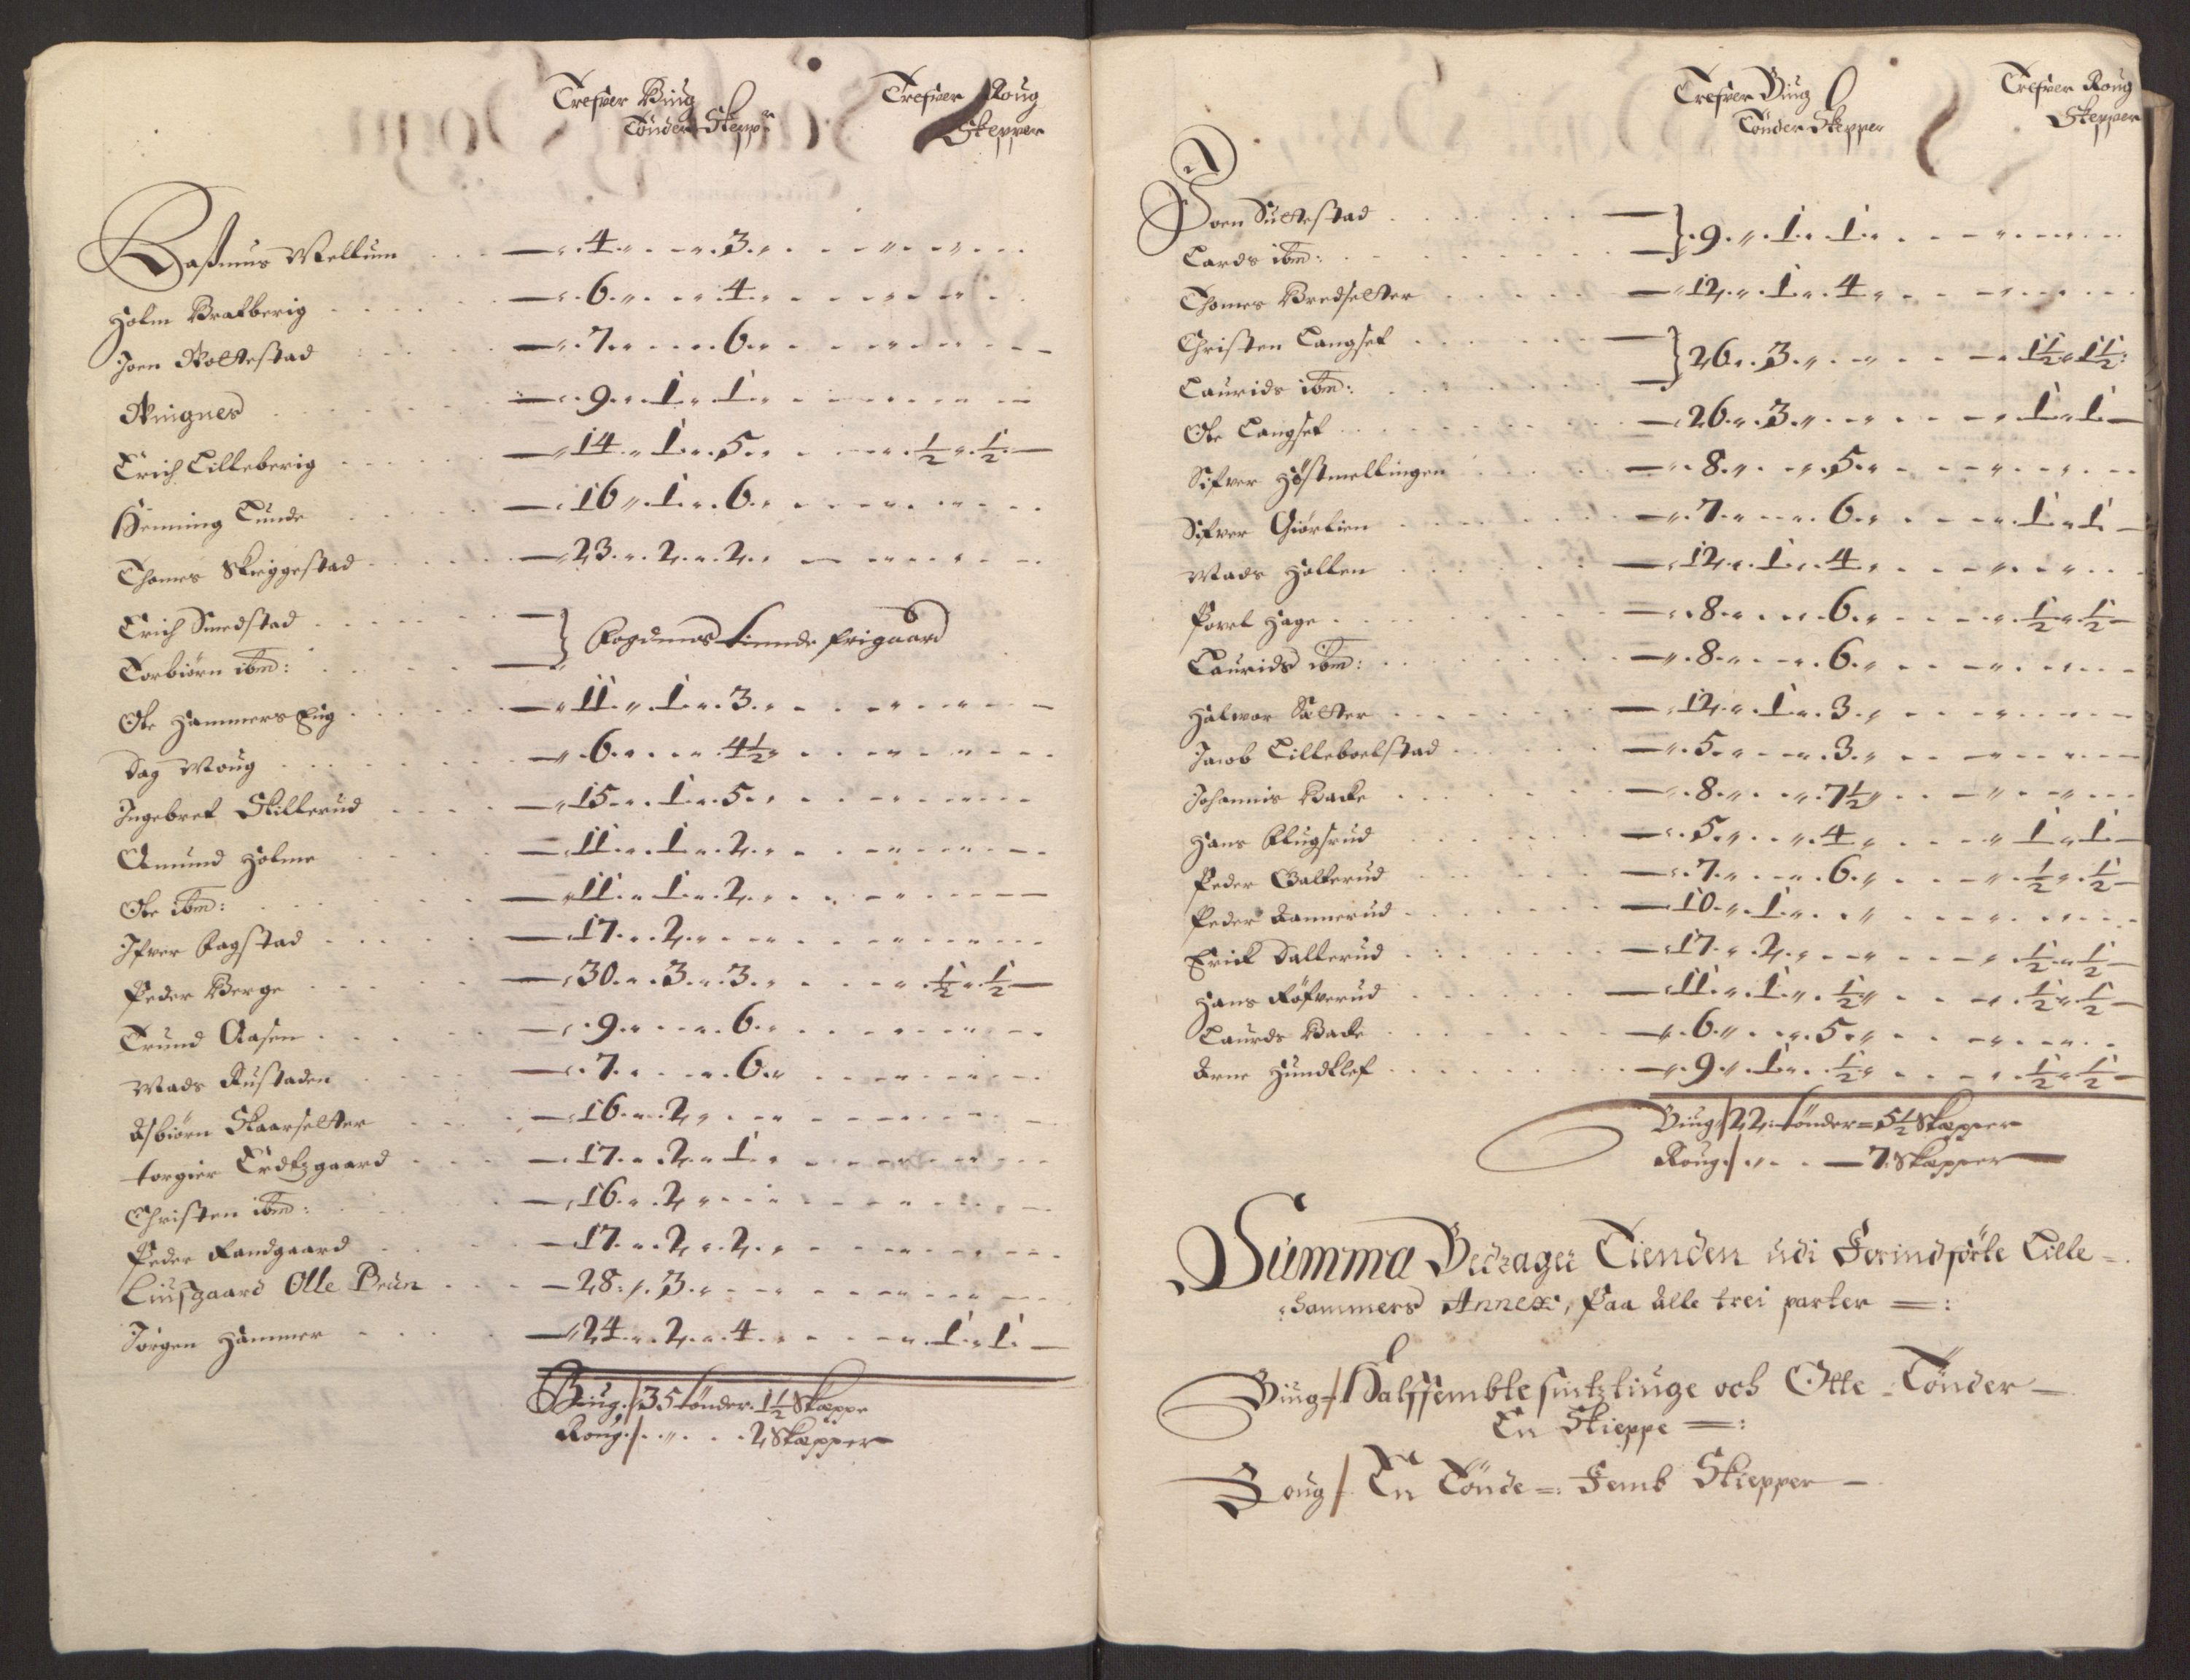 Trefver Biug Trefver Roug
Tönder Skepp: Skepper
Rasmus Mellum 4 3
Holm Brakberig 6 4
Joen Rolttestad 7 6
Ringnes 9 1 1
Erich Lilleberig 14 1 5 ½ ½
Henning Lunde 16 1 6
Thomes Skieggestad 23 2 2
Erich Smedstad } Fogdens tiende frigaard
Torbiörn ibm:
Ole Hammerseng 11 1 3
Dag Moug 6 4½
Ingebret Skillerud 15 1 5
Amund Holme 11 1 2
Ole ibm: 11 1 2
Ifver Fagstad 17 2
Peder Berge 30 3 3 ½ ½
Trund Aasen 9 6
Mads Rustaden 7 6
Asbiörn Skaarseltter 16 2
torgier Erdtzgaard 17 2 1
Christen ibm: 16 2
Peder Randgaard 17 2 2
Liusgaard Olle Brun 28 3
Jörgen Hammer 24 2 4 1 1
Biug / 35 tönder 1½ Skeppe
Roug / 2 Skepper
Trefver Biug Trefver Roug
Tönder Skepper Skepper
Joen Sulttestad } 9 1 1
Lards ibm:
Thomes Bredseltter 12 1 4
Christen Langset } 26 3 1½ 1½
Laurids ibm:
Ole Langset 26 3 1 1
Sifver Höstmellingen 8 5
Sifver Giörlien 7 6 1 1
Mads Hollen 12 1 4
Povel Hage 8 6 ½ ½
Laurids ibm: 8 6
Halvor Sæltter 12 1 3
Jacob Lilleboelstad 5 3
Johannis Backe 8 7½
Hans Flugsrud 5 4 1 1
Peder Balkerud 7 6 ½ ½
Peder Rannerud 10 1
Erick Dallerud 17 2 ½ ½
Hans Röfverud 11 1 ½ ½ ½
Laurds Backe 6 5
Arne Hundklef 9 1 ½ ½ ½
Biug / 22 tönder = 5½ Skepper
Roug / 7 Skepper
Summa Bedrager Tienden udi Lille=
hammers Annex, Paa alle trei parter =:
Biug / Halffembtesintztiuge och Otte Tönder
En Skieppe =:
Roug / En Tönde =: Femb Skiepper